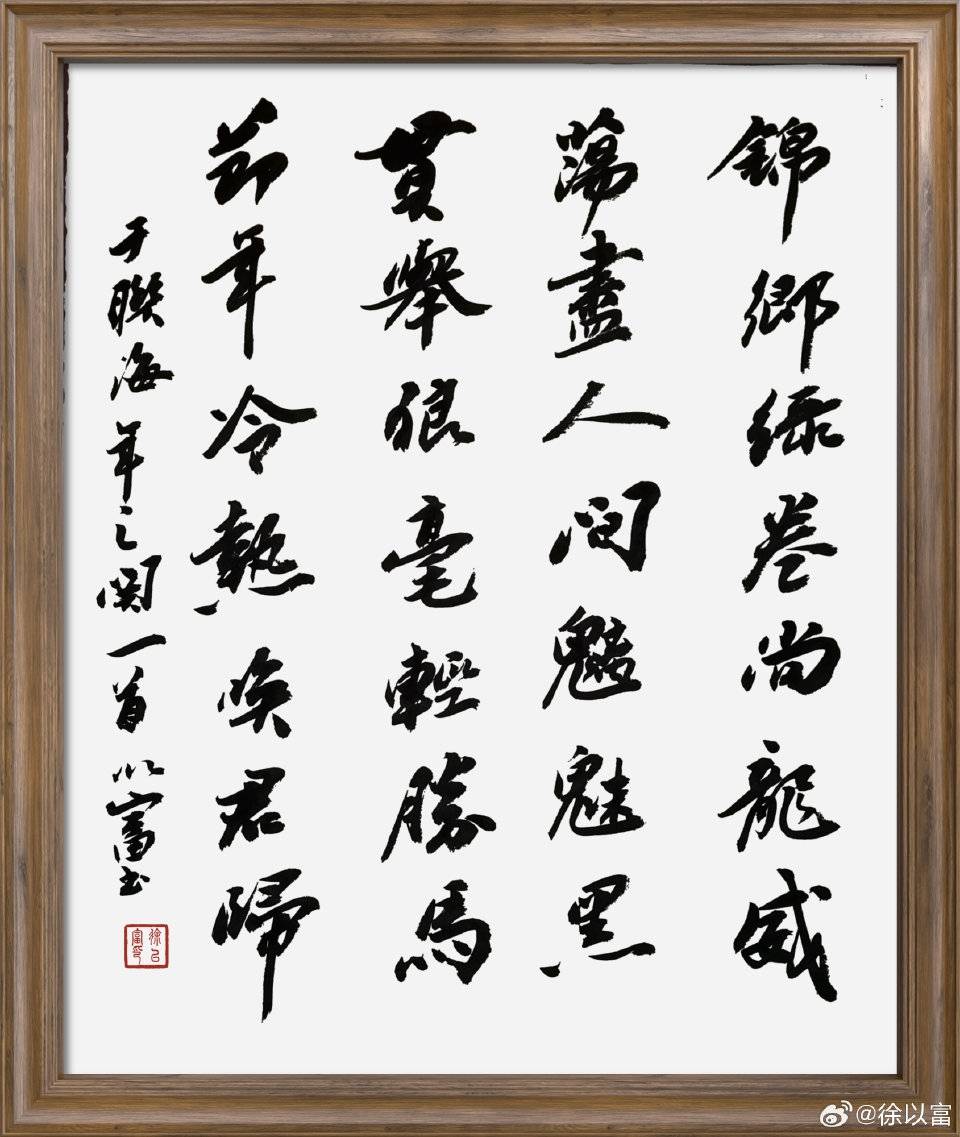 錦鄉綠卷尚龍威
蕩盡人間魑魅黑
貫舉狼毫輕勝馬
節年冷熱喚君歸
于聯海年之関一首以富书
徐以富印
@徐以富